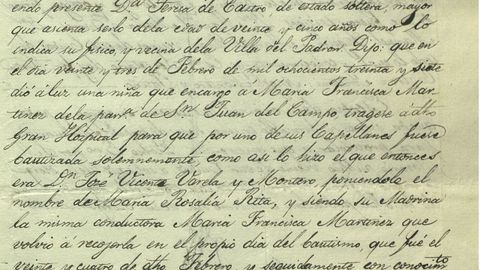 endo presente D.ª Teresa de Castro de estado soltera, mayor
que asienta serlo dela edad de veinte y cinco años como lo
indica su fisico, y vecina dela Villa del Padron. Dijo: que en
el dia veinte y tres de Febrero de mil ochocientos treinta y siete
dió á luz una niña que encargó a Maria Francisca Mar-
tinez dela parrª de S.n Juan del Campo tragese á dho
Gran Hospital para que por uno de sus Capellanes fuese
bautizada solemnemente, como asi lo hizo el que entonces
era D.n José Vicente Varela y Montero poniendola el
nombre de Maria Rosalia Rita, y siendo su Madrina
la misma conductora Maria Francisca Martinez que
volvió á recojerla en el propio dia del bautismo, que fué el
veinte y cuatro de dho Febrero y seguidamente con conocim.to